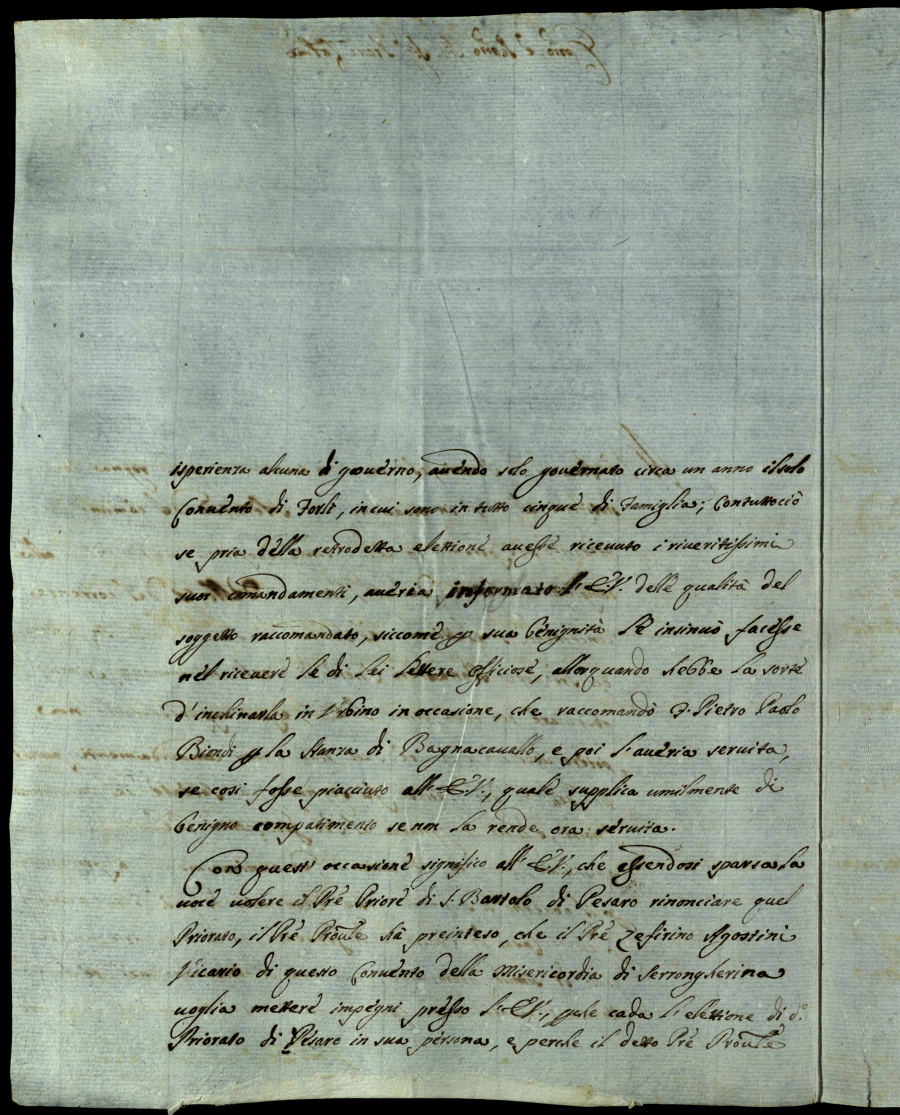 isperienza alcuna di governo, avendo solo governato circa un anno il solo
Convento di Forlì, in cui sono in tutto cinque di Famiglia; Contuttociò
se pria della retrodetta elettione avesse ricevuto i riveritissimi
suoi comandamenti, averia informato l'E.V. delle qualità del
soggetto raccomandato, siccome p sua benignità Le insinuò facesse
nel ricevere le di Lei lettere officiose, allorquando hebbe la sorte
d'inchinarla in Urbino in occasione, che raccomandò F. Pietro Paolo
Biondi p la stanza di Bagnacavallo, e poi l'averia servita,
se così fosse piaciuto all'E.V., quale supplica umilmente di
benigno compatimento se non la rende ora servita.
Con quest' occasione significo all'E.V., che essendosi sparsa la
voce volere il Pre Priore di S. Bartolo di Pesaro rinonciare quel
Priorato, il Pre Pronle hà preinteso, che il Pre Zefirino Agostini
Vicario di questo Convento della Misericordia di Serrongherina
voglia mettere impegni presso l'E.V., cada l'elettione di d.º
Priorato di Pesaro in sua persona, e perche il detto Pre Pronle